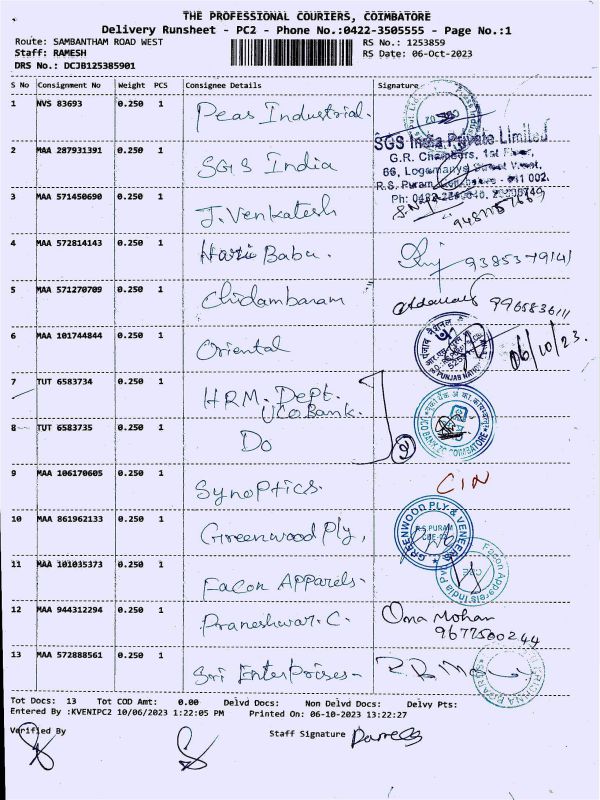 THE PROFESSIONAL COURIERS, COIMBATORE
Delivery Runsheet - PC2 - Phone No.:0422-3505555 - Page No.:1
Route: SAMBANTHAM ROAD WEST
RS No.: 1253859
Staff: RAMESH
RS Date: 06-Oct-2023
DRS No.: DCJB125385901
S No Consignment No Weight PCS Consignee Details Signature
1 NVS 83693 0.250 1 Peas Industrial.
SGS India Private Limited
G.R. Chambers, 1st Floor,
2 MAA 287931391 0.250 1 SGS India
R.S. Puram, Coimbatore - 641 002.
3 MAA 571450690 0.250 1 J. Venkatesh
4 MAA 572814143 0.250 1 Harie Babu. 9385379141
5 MAA 571270709 0.250 1 Chidambaram 9965836111
6 MAA 101744844 0.250 1 Oriental 06/10/23.
7 TUT 6583734 HRM. Dept.
UCO Bank.
8 TUT 6583735 0.250 1 Do
UCO BANK ZO COIMBATORE
9 MAA 106170605 0.250 1 Synoptics. CIN
10 MAA 861962133 0.250 1 Greenwood Ply,
GREENWOOD PLY & VENEERS
R.S. PURAM
CBE-02
11 MAA 101035373 0.250 1 Facon Apparels.
Facon Apparels India Pvt
12 MAA 944312294 0.250 1 Praneshwar. C. Oma Mohan
9677500244
13 MAA 572888561 0.250 1 Sri Enterprises-
Tot Docs: 13 Tot COD Amt: 0.00 Delvd Docs: Non Delvd Docs: Delvy Pts:
Entered By :KVENIPC2 10/06/2023 1:22:05 PM Printed On: 06-10-2023 13:22:27
Verified By
Staff Signature